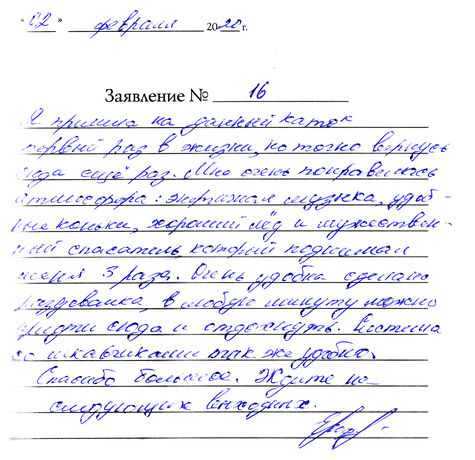 "02" февраля 2020 г.
Заявление № 16
Я пришла на данный каток
первый раз в жизни, но точно вернусь
сюда ещё раз. Мне очень понравилась
атмосфера: энергичная музыка, удоб-
ные коньки, хороший лёд и мужествен-
ный спасатель, который поднимал
меня 3 раза. Очень удобно сделана
раздевалка, в любую минуту можно
придти сюда и отдохнуть. Система
со шкавчиками так же удобна.
Спасибо большое. Ждите на
следующих выходных.